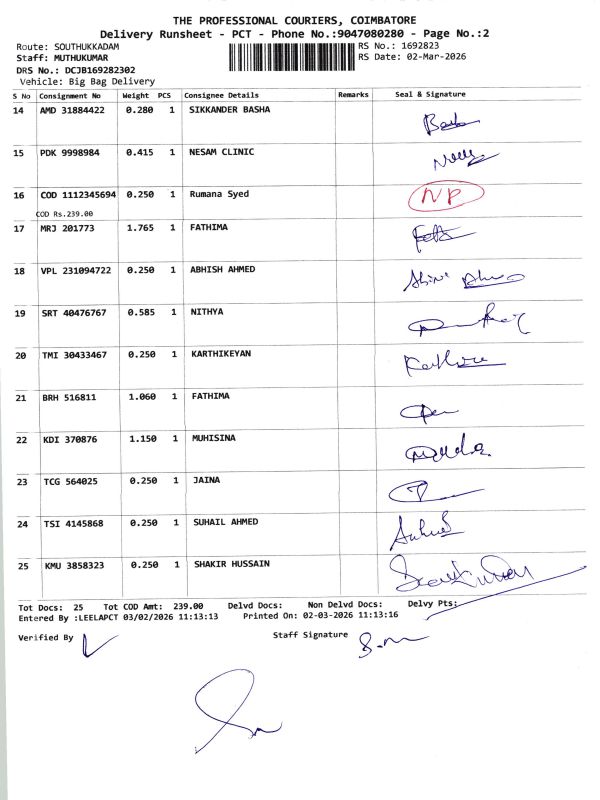 THE PROFESSIONAL COURIERS, COIMBATORE
Delivery Runsheet - PCT - Phone No.:9047080280 - Page No.:2
Route: SOUTHUKKADAM RS No.: 1692823
Staff: MUTHUKUMAR RS Date: 02-Mar-2026
DRS No.: DCJB169282302
Vehicle: Big Bag Delivery
S No Consignment No Weight PCS Consignee Details Remarks Seal & Signature
14 AMD 31884422 0.280 1 SIKKANDER BASHA
15 PDK 9998984 0.415 1 NESAM CLINIC
16 COD 1112345694 0.250 1 Rumana Syed NP
COD Rs.239.00
17 MRJ 201773 1.765 1 FATHIMA
18 VPL 231094722 0.250 1 ABHISH AHMED
19 SRT 40476767 0.585 1 NITHYA
20 TMI 30433467 0.250 1 KARTHIKEYAN
21 BRH 516811 1.060 1 FATHIMA
22 KDI 370876 1.150 1 MUHISINA
23 TCG 564025 0.250 1 JAINA
24 TSI 4145868 0.250 1 SUHAIL AHMED
25 KMU 3858323 0.250 1 SHAKIR HUSSAIN
Tot Docs: 25 Tot COD Amt: 239.00 Delvd Docs: Non Delvd Docs: Delvy Pts:
Entered By :LEELAPCT 03/02/2026 11:13:13 Printed On: 02-03-2026 11:13:16
Verified By Staff Signature